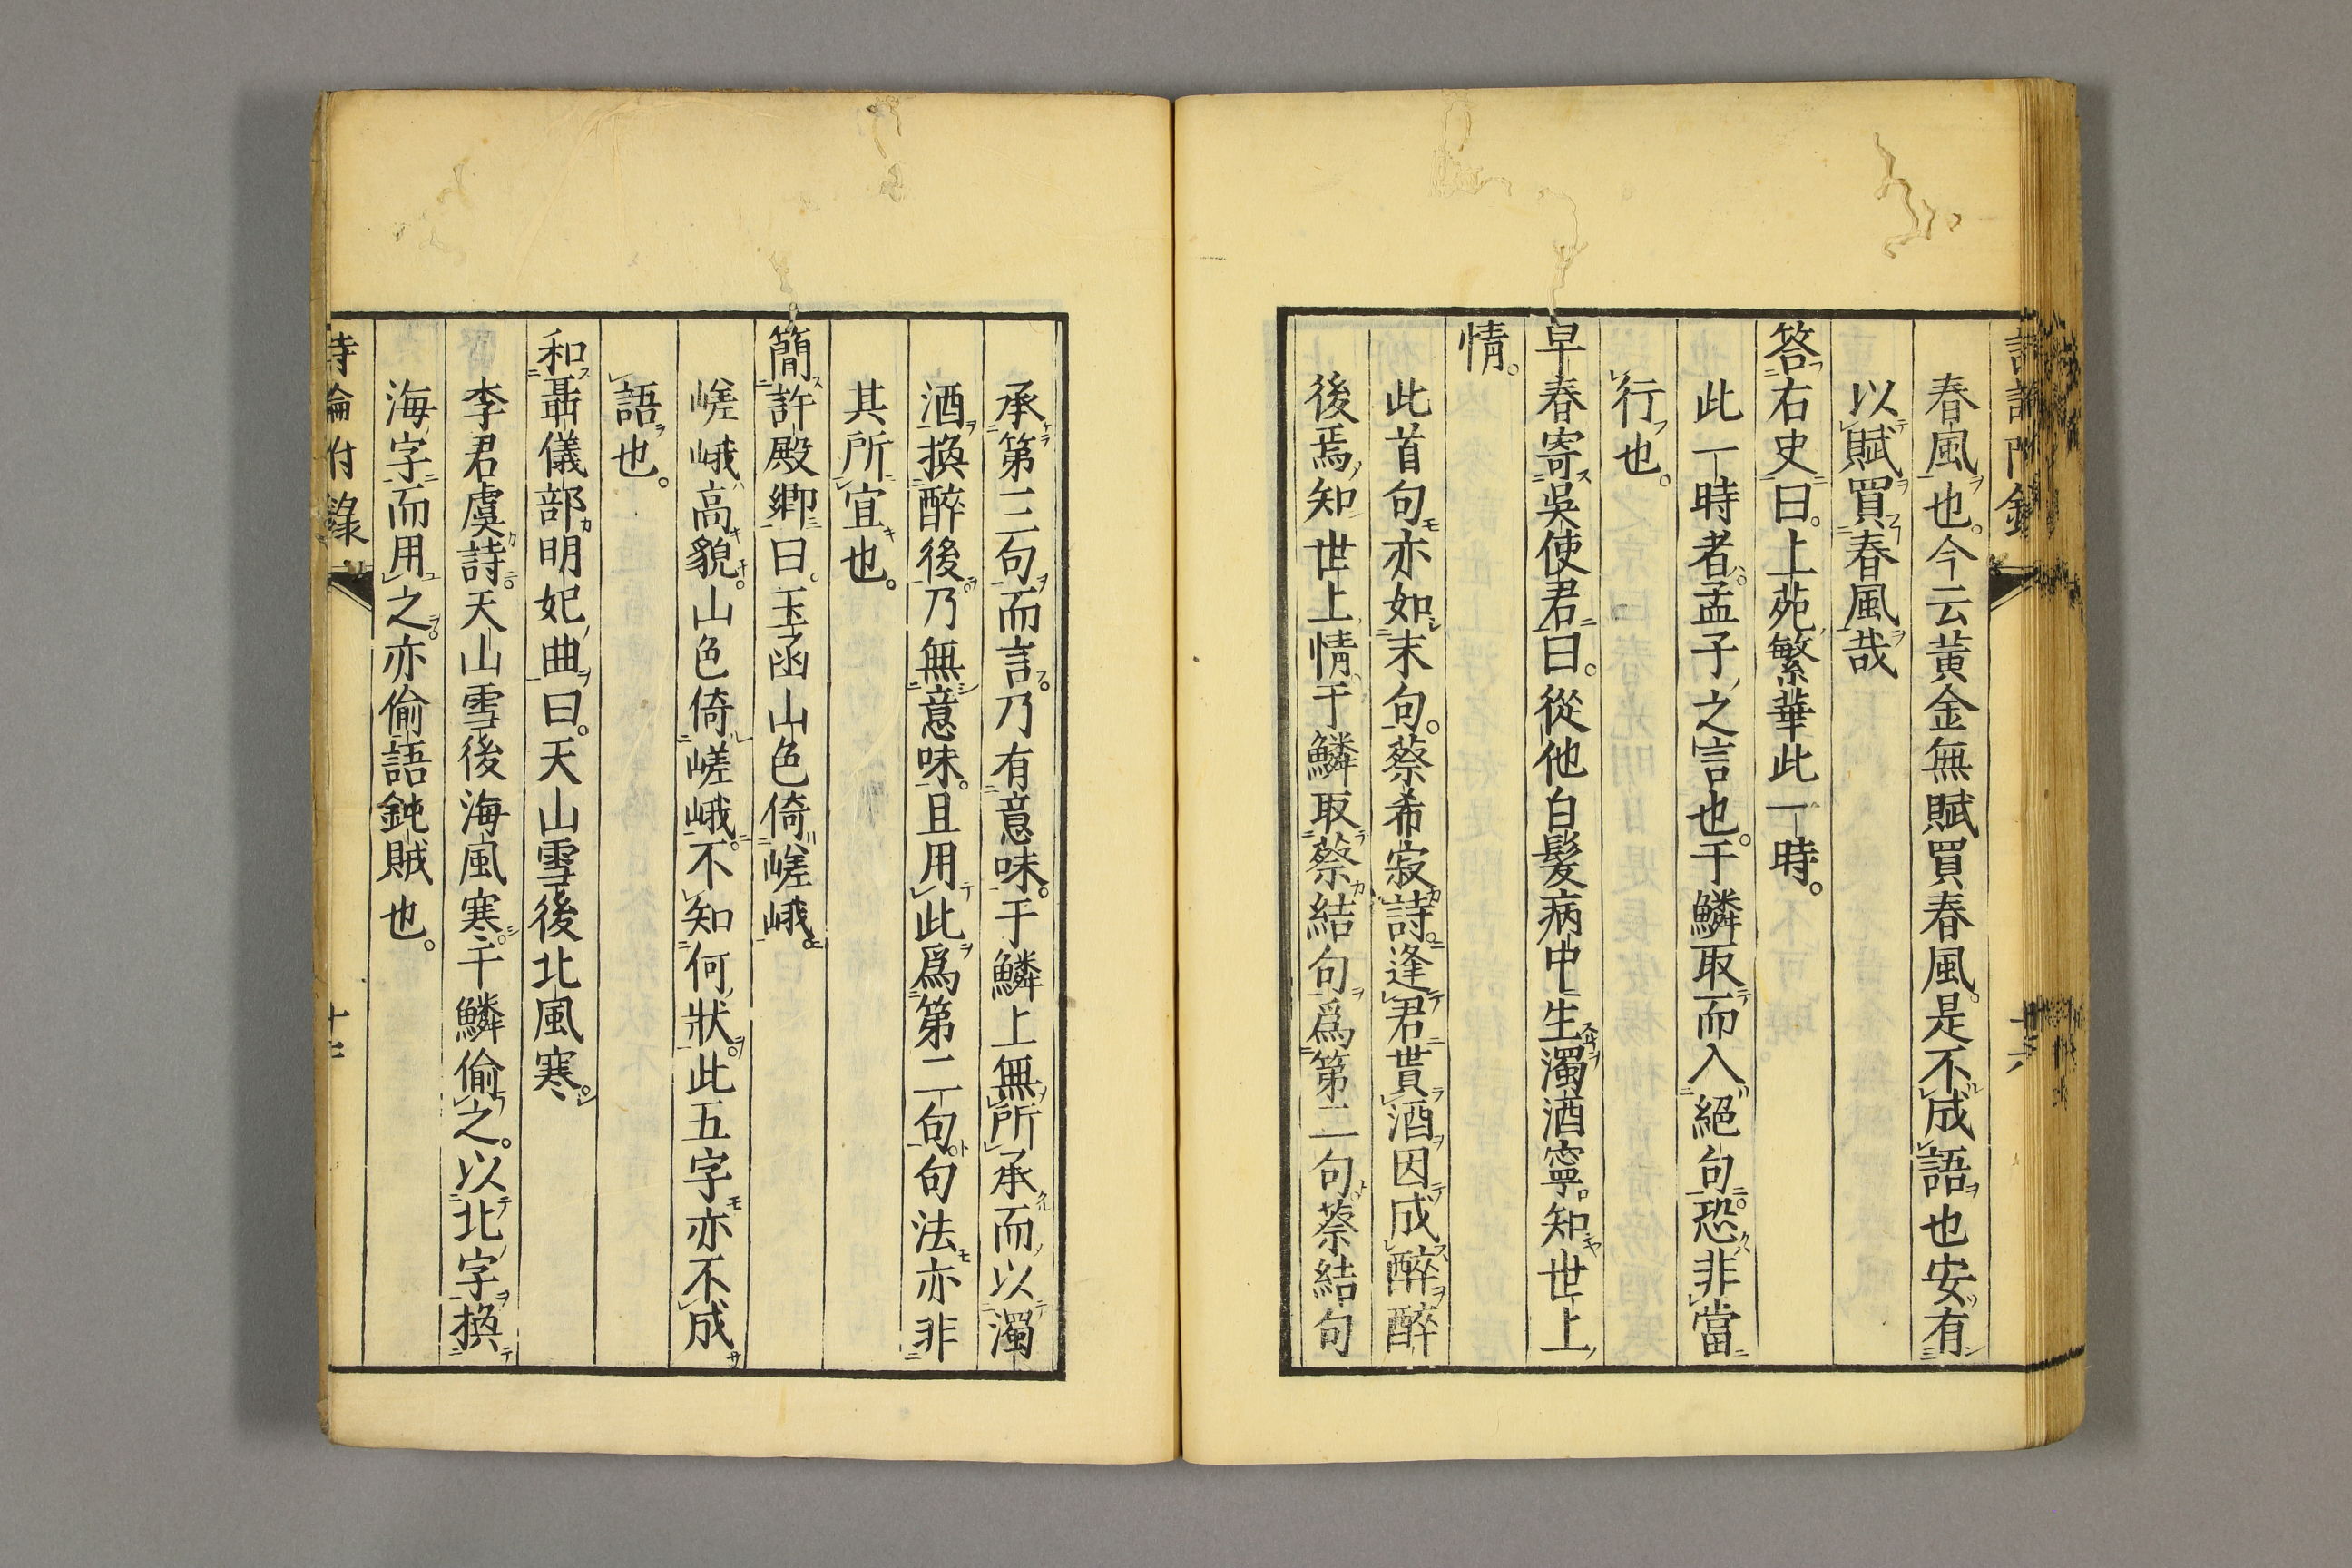 春風也。今云黄金無賦買春風。是不成語也安有
以賦買春風哉
答右史曰。上苑繁華此一時。
此一時者。孟子之言也。于鱗取而入絕句。恐非當
行也。
早春寄吳使君曰。從他白髮病中生濁酒寧知世上
情。
此首句亦如末句。蔡希寂詩。逢君貰酒因成醉醉
後焉知世上情。于鱗取蔡結句爲第二句。蔡結句
承第三句而言。乃有意味。于鱗上無所承而以濁
酒換醉後。乃無意味。且用此爲第二句。句法亦非
其所宜也。
簡許殿卿曰。玉函山色倚嵯峨。
嵯峨高貌。山色倚嵯峨。不知何狀。此五字亦不成
語也。
和聶儀部明妃曲曰。天山雪後北風寒。
李君虞詩。天山雪後海風寒。于鱗偷之。以北字換
海字而用之。亦偷語鈍賊也。
詩論付錄